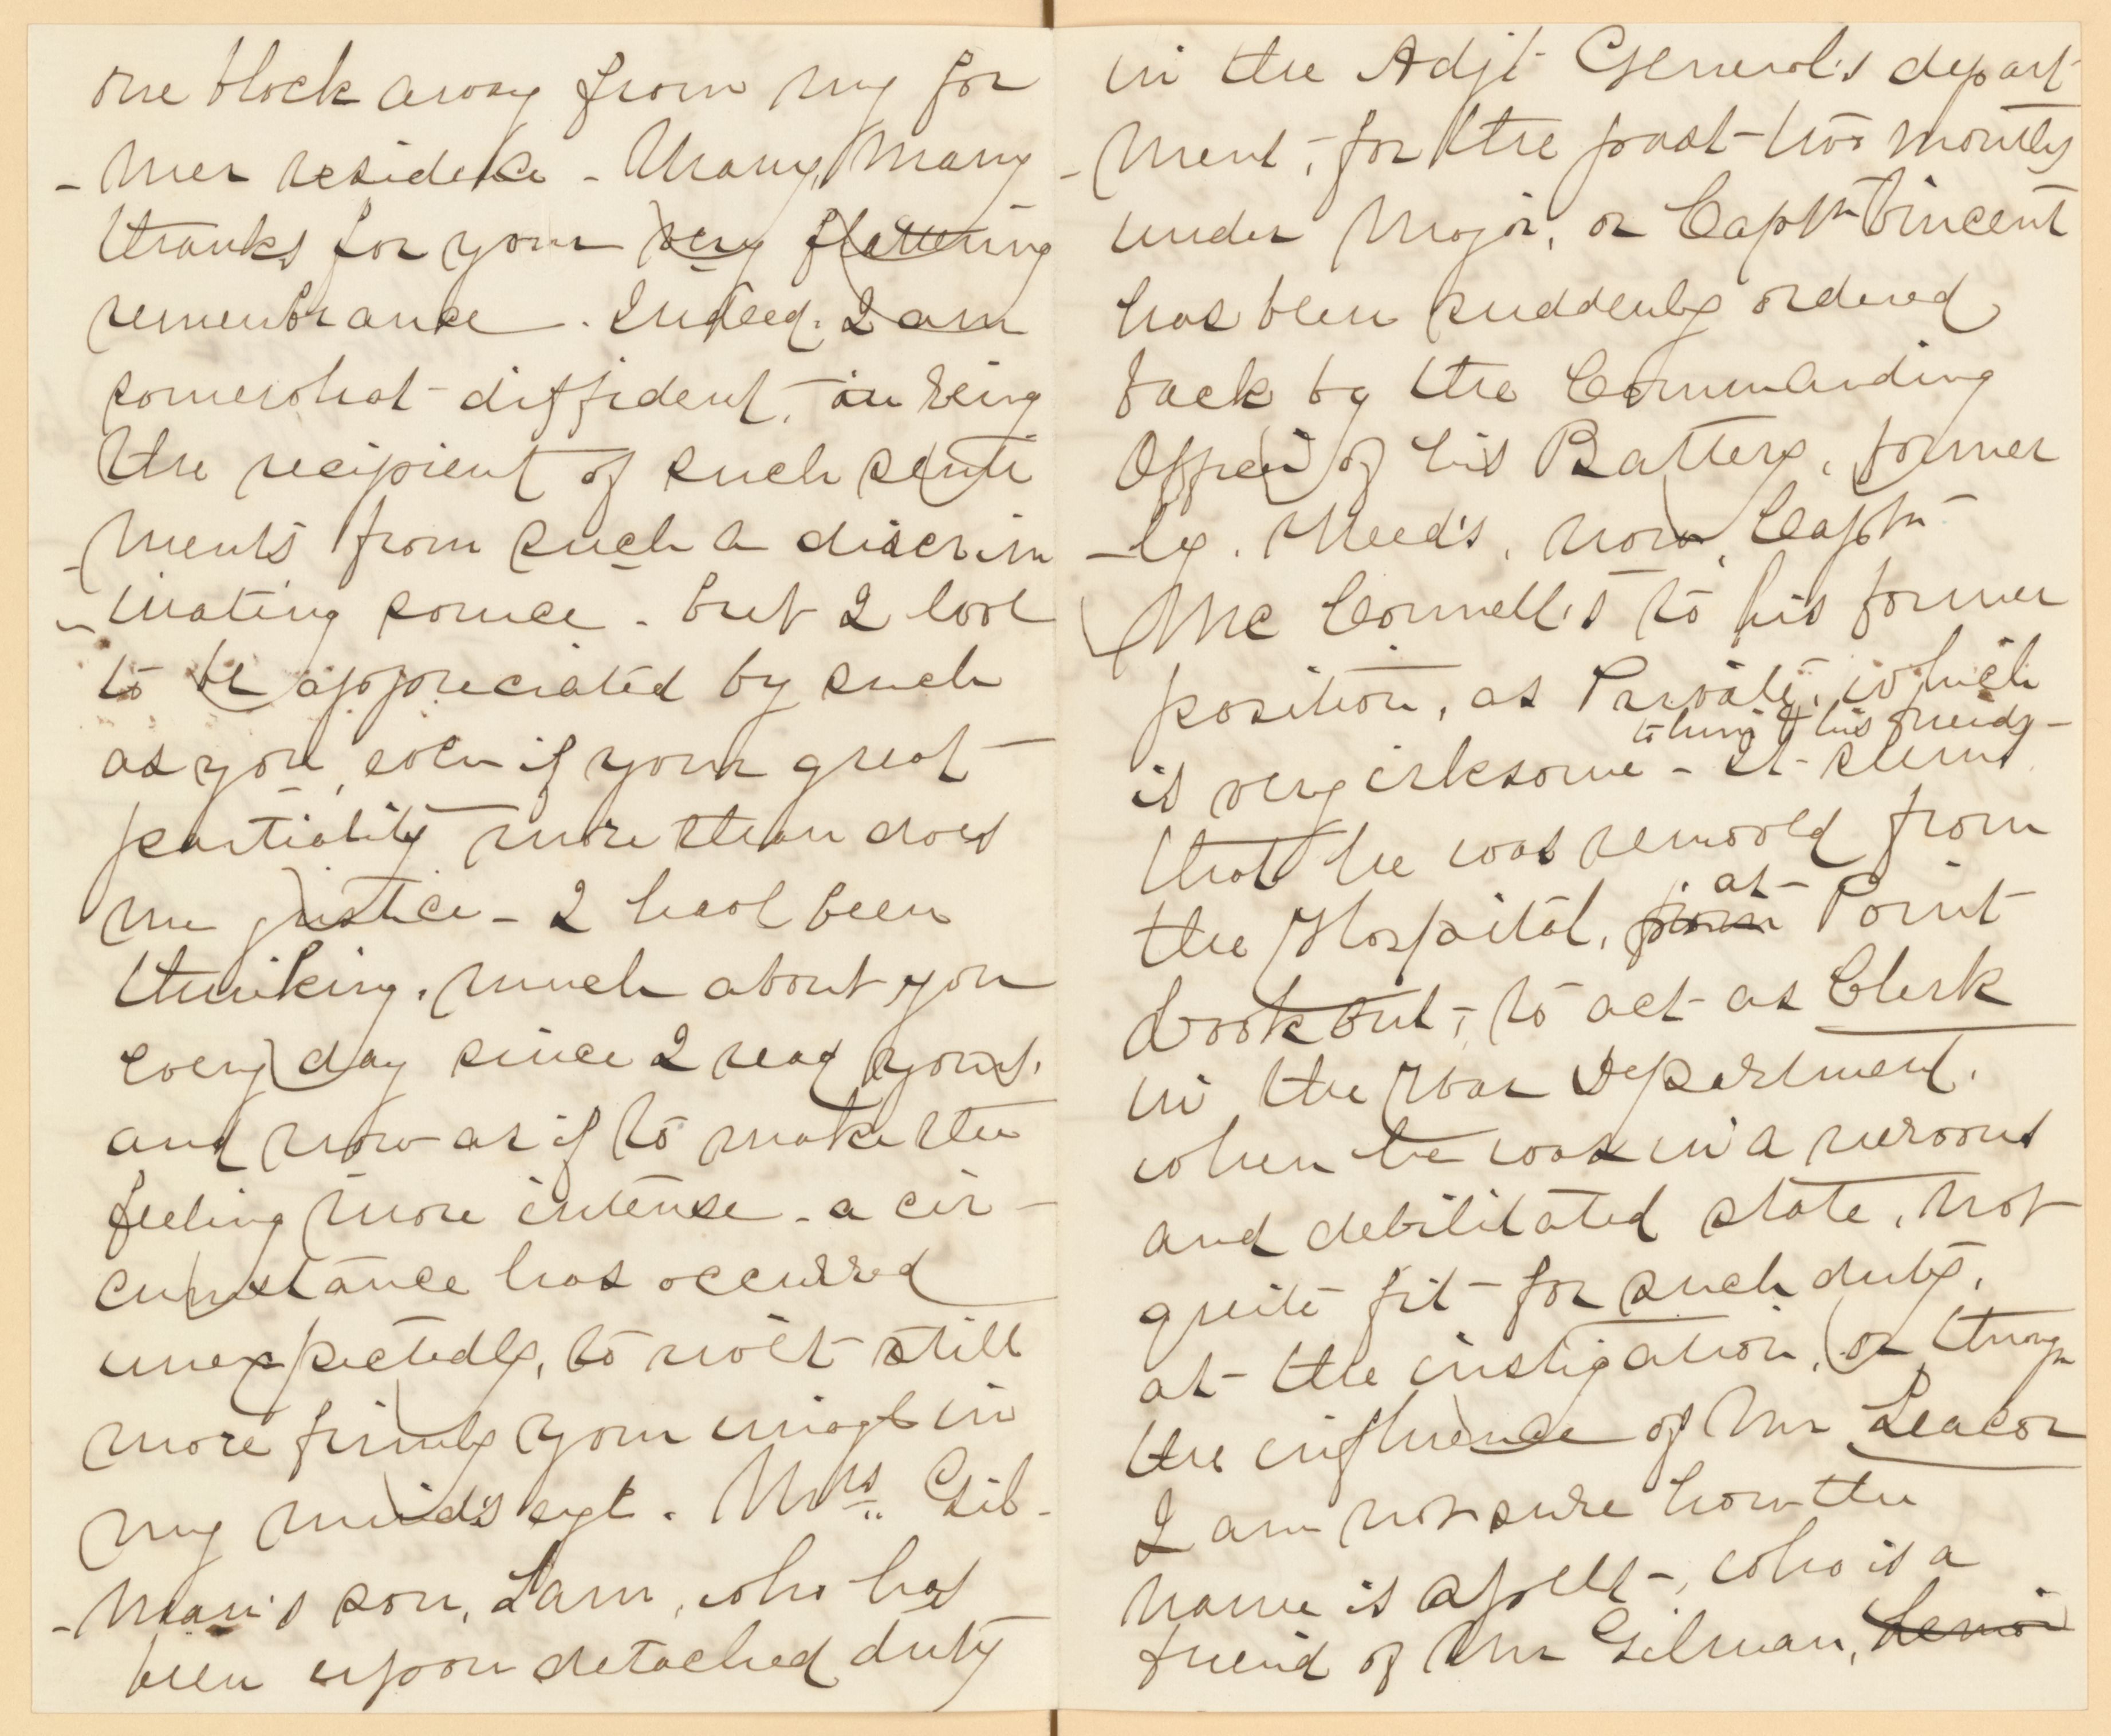 one block away from my for
-mer residence - Many, Many
thanks for your very flattering
remembrance. Indeed, I am
somewhat diffident, in being
the recipient of such senti
-ments from such a discrim
-inating source - but I love
to be appreciated by such
as you, even if your great
partiality more than does
me justice - I have been
thinking, much about you
every day since I read yours,
and now as if to make the
feeling more intense - a cir-
cumstance has occurred
unexpectedly, to rivet still
more firmly your image in
my mind's eye. Mrs. Gil-
-man's son, Sam, who has
been upon detached duty
in the Adjt General's depart
-ment, for the past two months
under Major, or Captn Vincent
has been suddenly ordered
back by the Commanding
Officer of his Battery, former
-ly. Weed's, now, Captn
McConnell's to his former
position, as Private, which
to him & his friends -
is very irksome - It seems
that he was removed from
at
the Hospital, from Point
Lookout, to act as Clerk
in the War Department.
when he was in a nervous
and debilitated state, not
quite fit for such duty,
at the instigation, or through
the influence of Mr Leacor
I am not sure how the
name is spelt, who is a
friend of Mr Gilman,